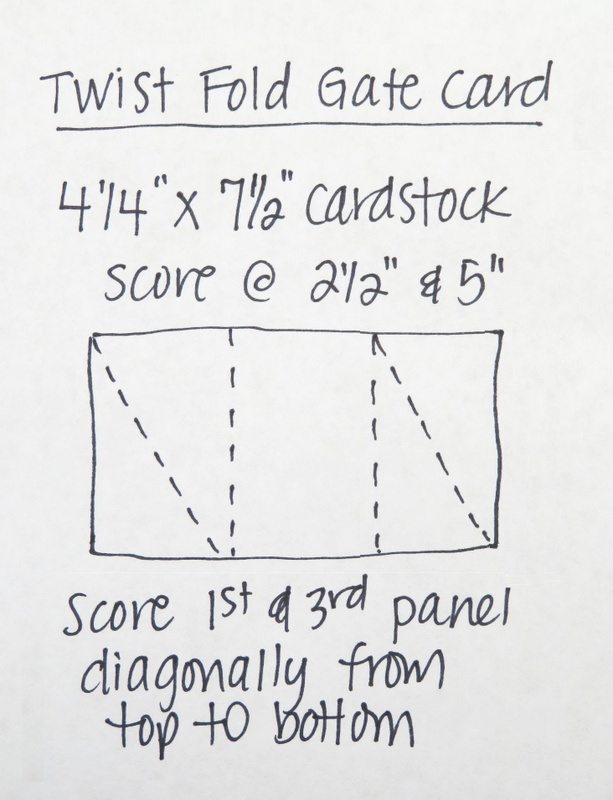 Twist Fold Gate Card
4 1/4" x 7 1/2" cardstock
score @ 2 1/2" & 5"
Score 1st & 3rd panel
diagonally from
top to bottom